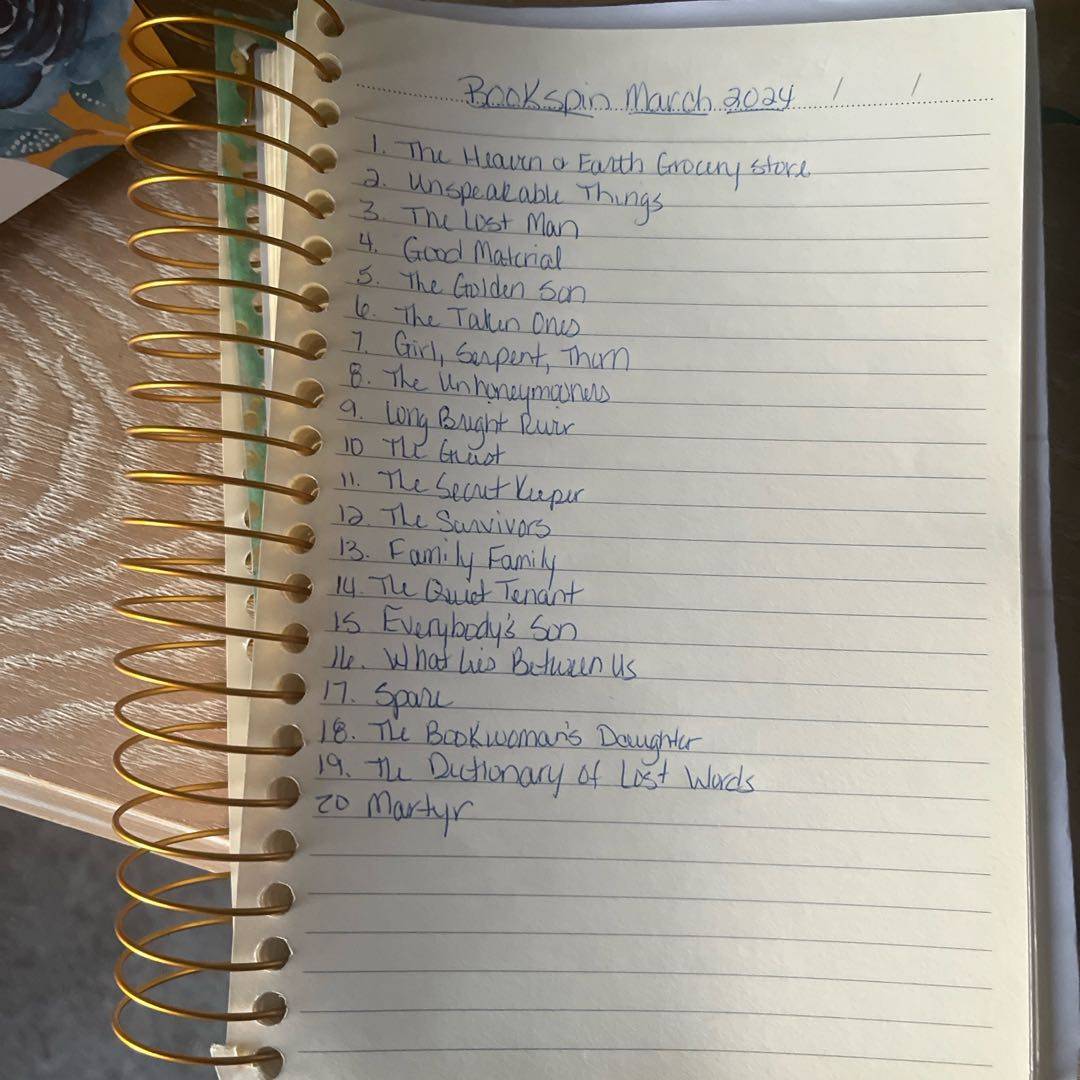 Bookspin March 2024 / /
1. The Heaven & Earth Grocery store
2. Unspeakable Things
3. The Lost Man
4. Good Material
5. The Golden Son
6. The Taken Ones
7. Girl, Serpent, Thorn
8. The Unhoneymooners
9. Long Bright River
10 The Guest
11. The Secret Keeper
12. The Survivors
13. Family Family
14. The Quiet Tenant
15 Everybody's Son
16. What Lies Between Us
17. Spare
18. The Bookwoman's Daughter
19. The Dictionary of Lost Words
20 Martyr